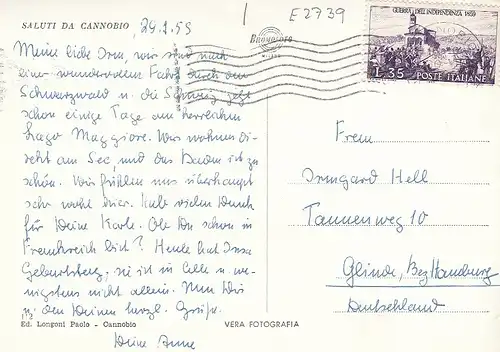 SALUTI DA CANNOBIO
E2739
Buonocore
GUERRA DELL'INDIPENDENZA 1859
L.35 POSTE ITALIANE
Meine liebe Irm, wir sind nach
einer wundervollen Fahrt durch den
Schwarzwald u. die Schweiz jetzt
schon einige Tage am herrlichen
Lago Maggiore. Wir wohnen di-
rekt am See, und das Baden ist zu
schön. Wir fühlen uns überhaupt
sehr wohl hier. Hab vielen Dank
für Deine Karte. Ob Du schon in
Frankreich bist? Heute hat Inga
Geburtstag, sie ist in Celle u. we-
nigstens nicht allein. Nun Dir
u. den Deinen herzl. Grüße.
Deine Anne
Frau
Irmgard Hell
Tannenweg 10
Glinde, Bez Hamburg
Deutschland
Ed. Longoni Paolo - Cannobio
VERA FOTOGRAFIA